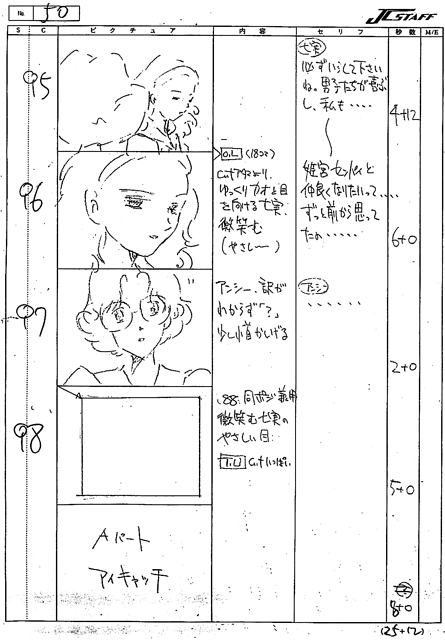 No. 50
J.C.STAFF
S
C
ピクチュア
内容
セリフ
秒数
M/E
95
七実
必ずいらして下さい
ね。男子たちが喜ぶ
し、私も・・・・
4+12
96
O.L
Cut
ゆっくりカオと目
を向ける七実、
微笑む
(やさしー)
姫宮センパイと
仲良くなりたいって・・・・
ずっと前から思って
たの・・・・・・
6+0
97
アンシー、訳が
わからず「?」
少し首かしげる
アンシー
・・・・・・
2+0
98
88.同ポジ兼用
微笑む七実の
やさしい目・・
T.U Cutいっぱい。
5+0
Aパート
アイキャッチ
8+0
(25+12)